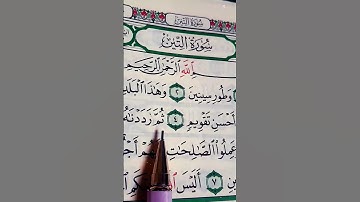 سُورَةُ التِّينِ
سُورَةُ التِّينِ
اللَّهِ الرَّحْمَٰنِ الرَّحِيمِ
وَطُورِ سِينِينَ ٢ وَهَٰذَا الْبَلَدِ
أَحْسَنِ تَقْوِيمٍ ٤ ثُمَّ رَدَدْنَاهُ
عَمِلُوا الصَّالِحَاتِ
٧ أَلَيْسَ